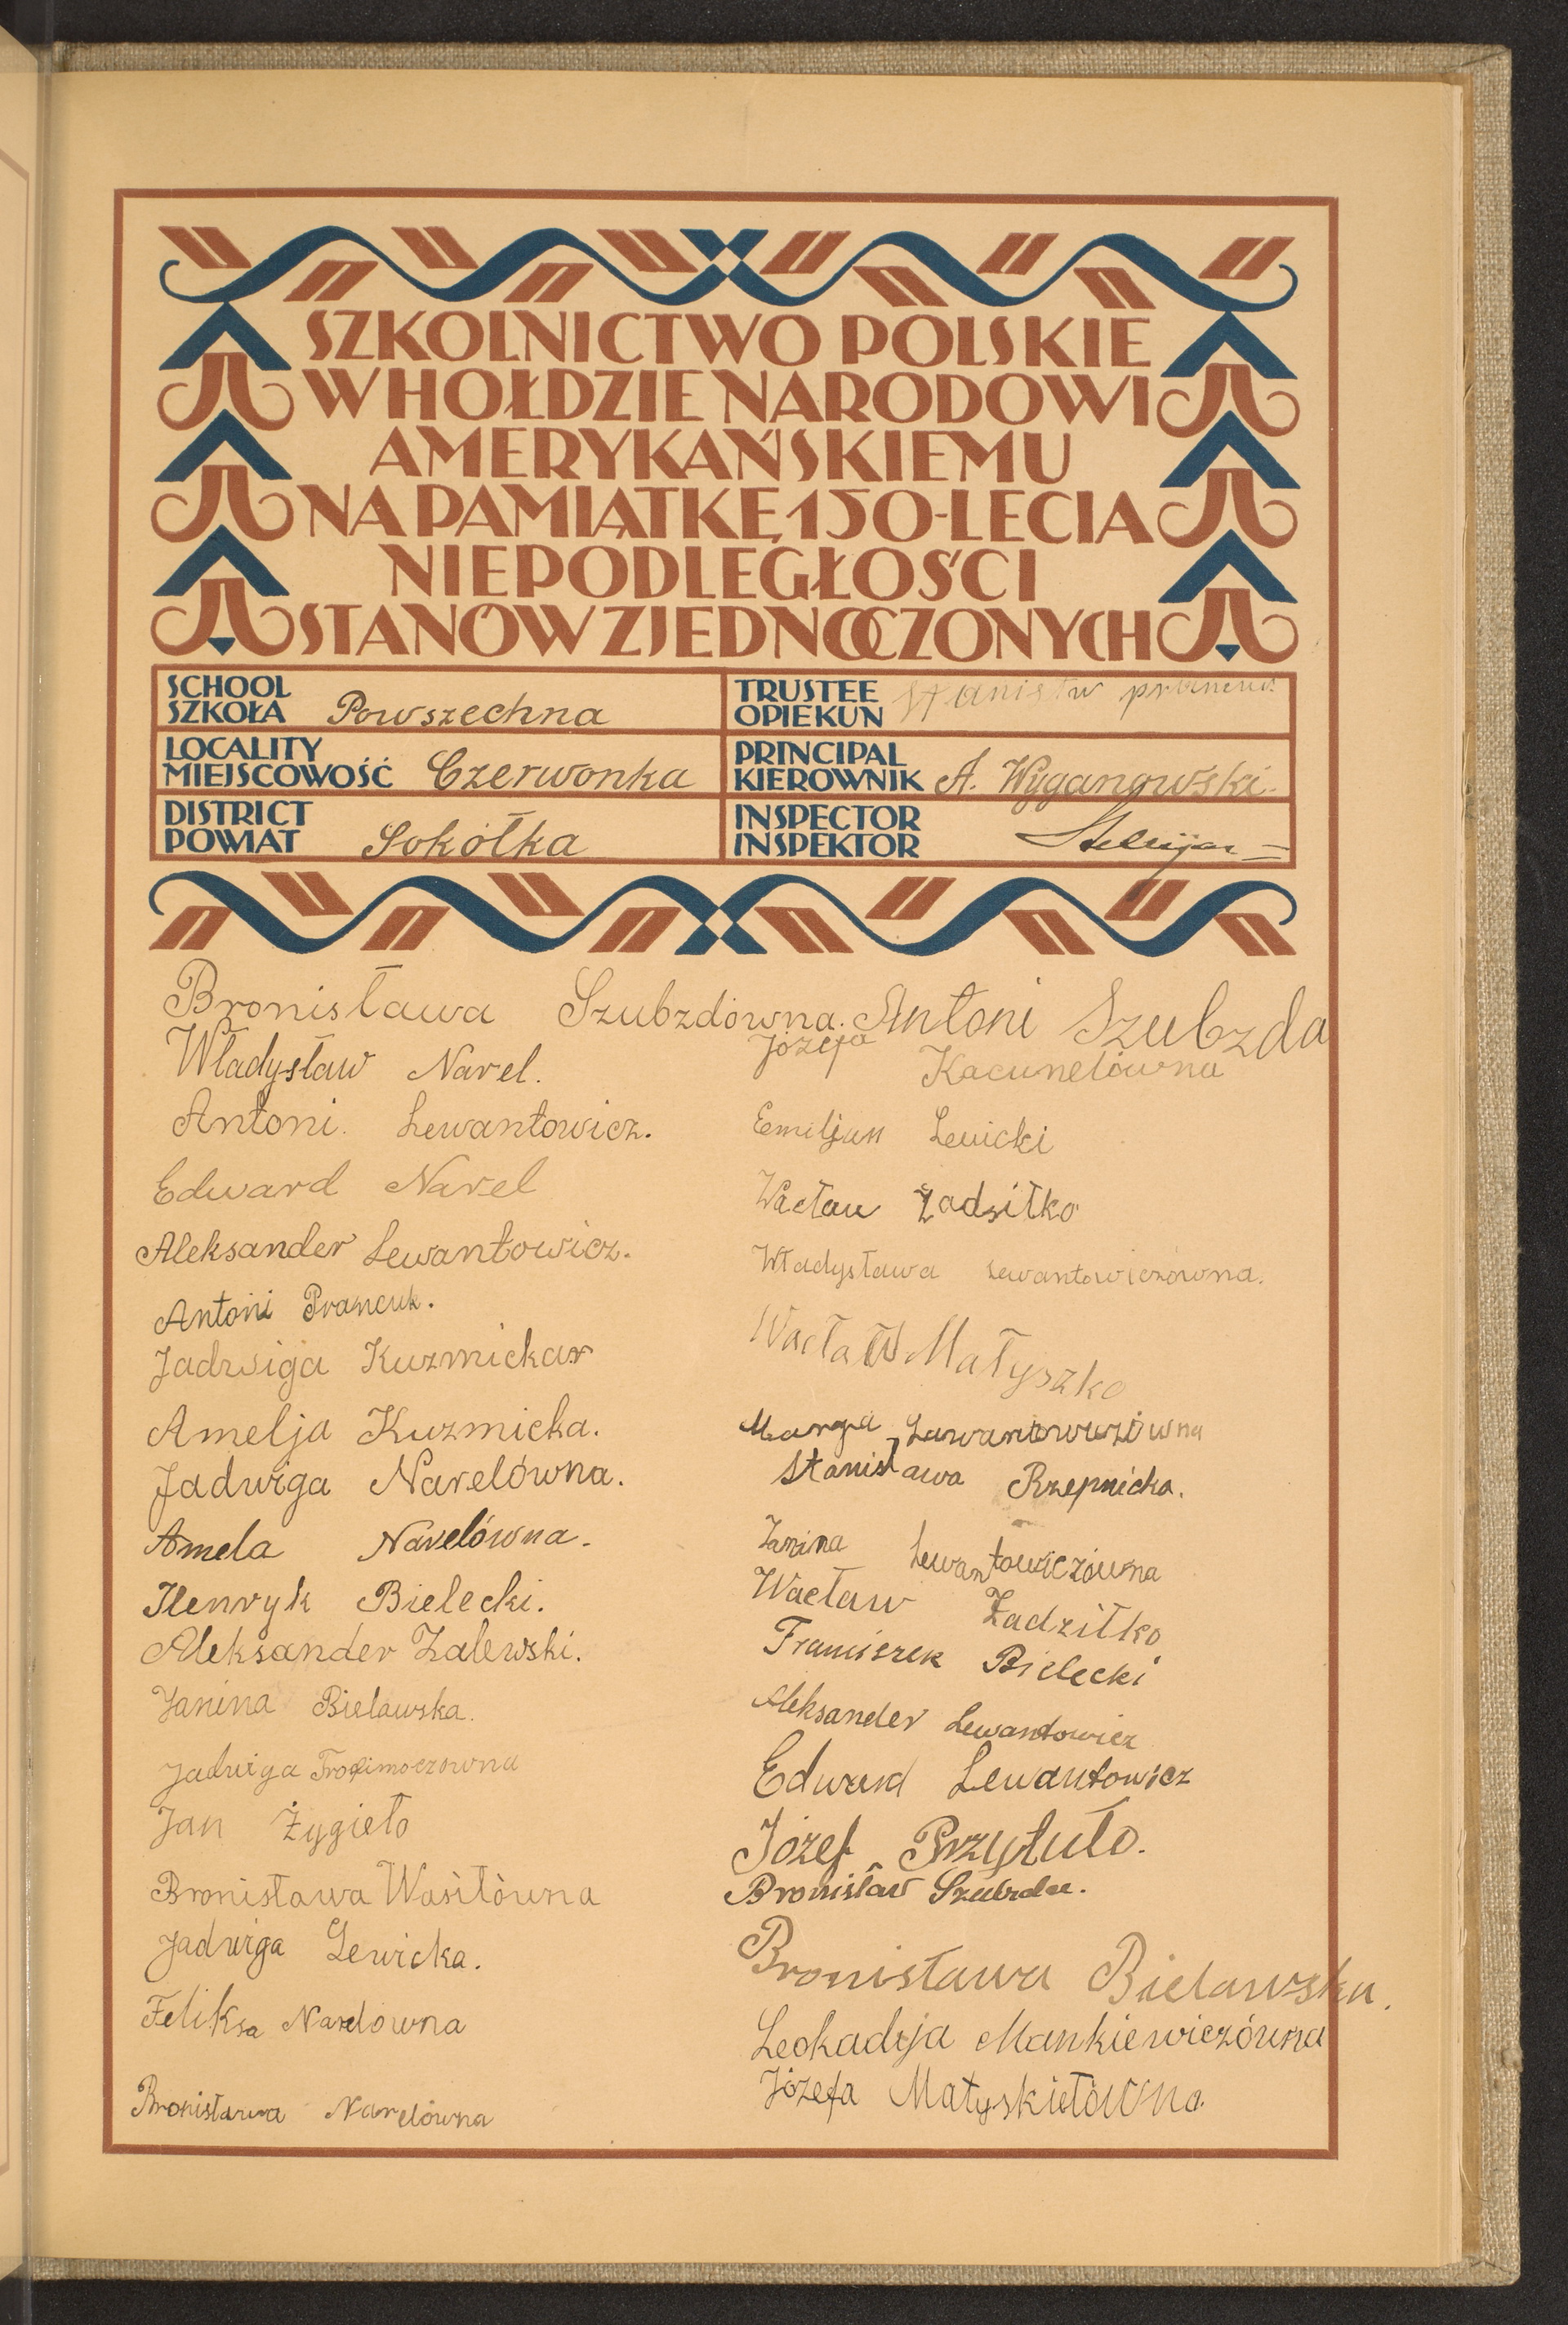 SZKOLNICTWO POLSKIE
W HOŁDZIE NARODOWI
AMERYKAŃSKIEMU
NA PAMIĄTKĘ 150-LECIA
NIEPODLEGŁOŚCI
STANÓW ZJEDNOCZONYCH
SCHOOL
SZKOŁA Powszechna
LOCALITY
MIEJSCOWOŚĆ Czerwonka
DISTRICT
POWIAT Sokółka
TRUSTEE
OPIEKUN
PRINCIPAL
KIEROWNIK A. Wyganowski.
INSPECTOR
INSPEKTOR
Bronisława Szubzdówna.
Władysław Narel.
Antoni. Lewantowicz.
Edward Narel
Aleksander Lewantowicz.
Antoni Prancuk.
Jadwiga Kuzmickar
Amelja Kuzmicka.
Jadwiga Narelówna.
Amela Narelówna.
Henryk Bielecki.
Aleksander Zalewski.
Janina Bielawska.
Jadwiga Trofimoczowna
Jan Żygieło
Bronisława Wasilòwna
Jadwiga Lewicka.
Feliksa Narelówna
Bronisława Narelówna
Antoni Szubzda
Józefa Kacunelówna
Emiljan Lewicki
Wacław Żadziłko
Władysława Lewantowiczowna.
Wacław Małyszko
Marya
Stanisława Rzepnicka.
Janina Lewantowiczówna
Wacław Żadziłko
Franciszek Bielecki
Aleksander Lewantowicz
Edward Lewantowicz
Józef Przytuło.
Bronisław Szubzda.
Bronisława Bielawska.
Leokadja Mankiewiczówna
Józefa Matyskiełòwna.